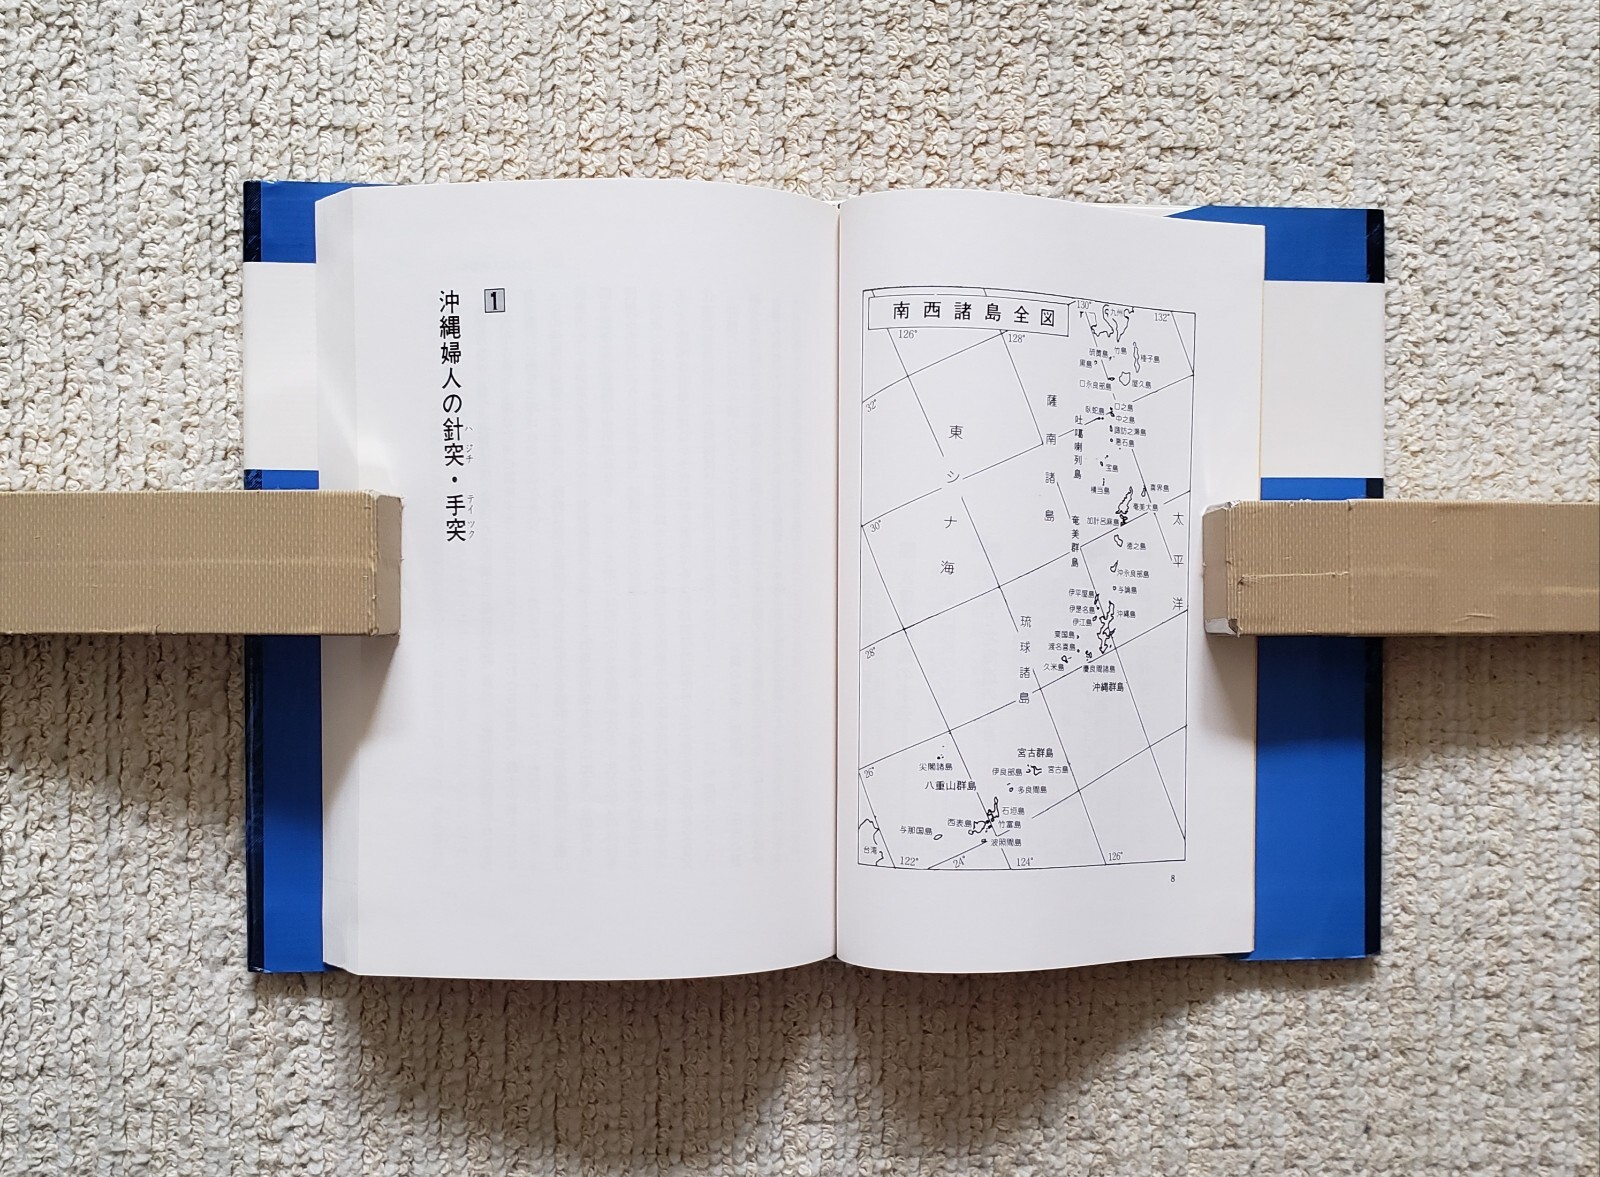 南西諸島全図
130°
九州
132°
126°
128°
硫黄島
竹島
種子島
黒島
口永良部島
屋久島
32°
薩南諸島
臥蛇島
口之島
中之島
諏訪之瀬島
悪石島
吐噶喇列島
宝島
横当島
喜界島
奄美大島
加計呂麻島
奄美群島
徳之島
太平洋
東シナ海
30°
沖永良部島
与論島
伊平屋島
伊是名島
伊江島
沖縄島
粟国島
渡名喜島
久米島
慶良間諸島
沖縄群島
琉球諸島
28°
尖閣諸島
宮古群島
伊良部島
宮古島
26°
八重山群島
多良間島
石垣島
西表島
竹富島
与那国島
波照間島
台湾
122°
24°
124°
126°
8
1
沖縄婦人の針突・手突
ハジチ
テイツク